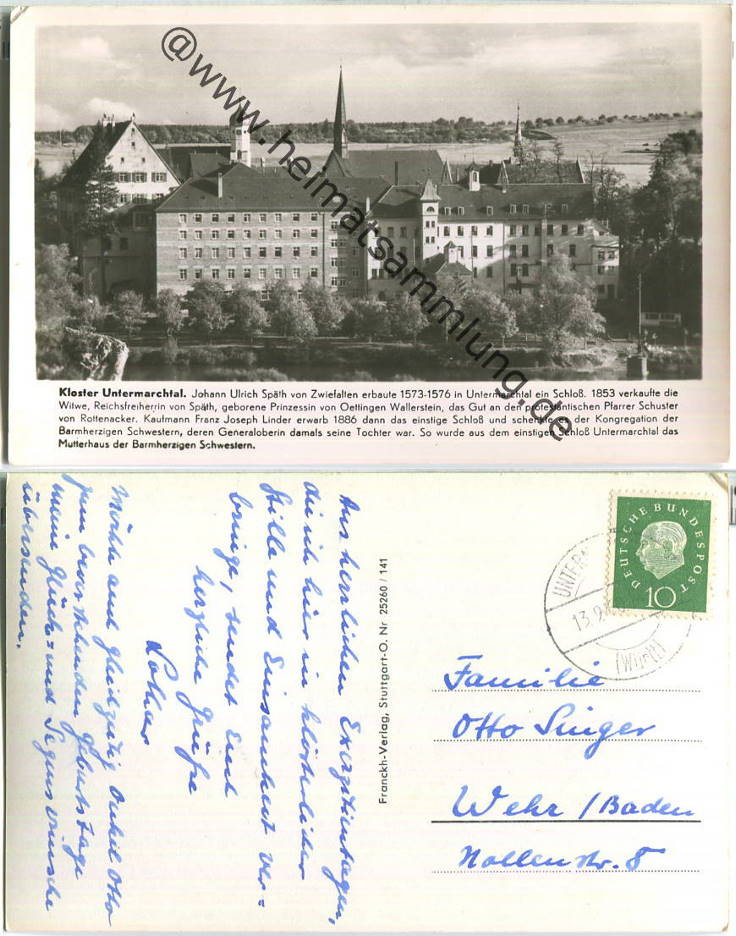 @www.heimatsammlung.de
Kloster Untermarchtal. Johann Ulrich Späth von Zwiefalten erbaute 1573-1576 in Untermarchtal ein Schloß. 1853 verkaufte die
Witwe, Reichsfreiherrin von Späth, geborene Prinzessin von Oettingen Wallerstein, das Gut an den protestantischen Pfarrer Schuster
von Rottenacker. Kaufmann Franz Joseph Linder erwarb 1886 dann das einstige Schloß und schenkte es der Kongregation der
Barmherzigen Schwestern, deren Generaloberin damals seine Tochter war. So wurde aus dem einstigen Schloß Untermarchtal das
Mutterhaus der Barmherzigen Schwestern.
Aus herrlichen Exerzitientagen,
die ich hier in klösterlicher
Stille und Einsamkeit ver-
bringe, sendet Euch
herzliche Grüße
Lothar
Möchte auch gleichzeitig Onkel Otto
zum bevorstehenden Geburtstage
meine Glück- und Segenswünsche
übersenden.
Franckh-Verlag, Stuttgart-O. Nr 25260 / 141
DEUTSCHE BUNDESPOST
10
UNTER
13.9.
(Württ)
Familie
Otto Singer
Wehr / Baden
Nollenstr. 8